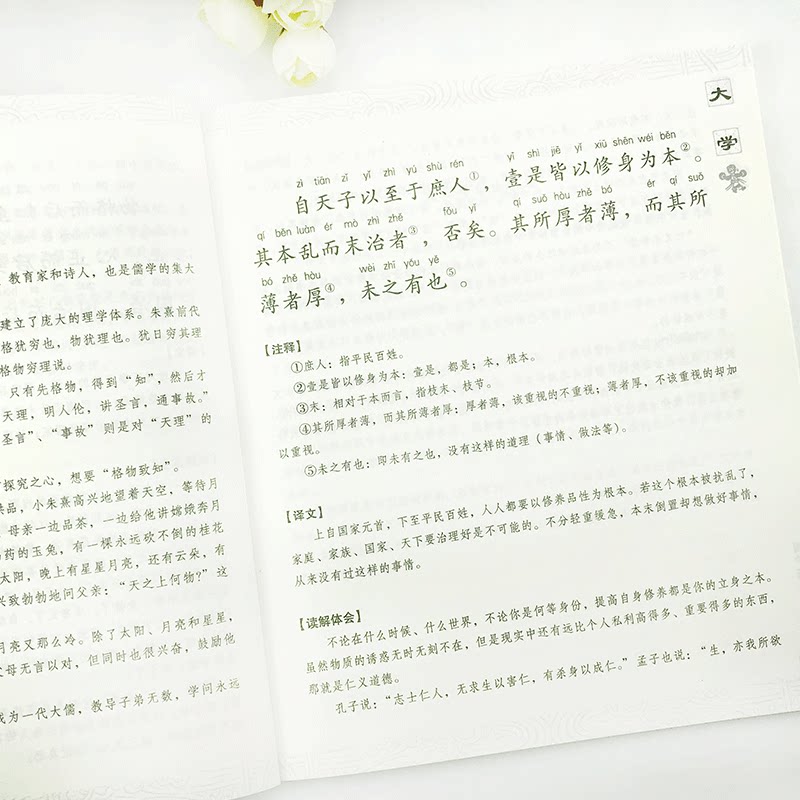 、教育家和诗人，也是儒学的集大
建立了庞大的理学体系。朱熹前代
格犹穷也，物犹理也。犹日穷其理
格物穷理说。
只有先格物，得到“知”，然后才
天理，明人伦，讲圣言，通事故。”
圣言”、“事故”则是对“天理”的
探究之心，想要“格物致知”。
品，小朱熹高兴地望着天空，等待月
母亲一边品茶，一边给他讲嫦娥奔月
药的玉兔，有一棵永远砍不倒的桂花
太阳，晚上有星星月亮，还有云朵，有
兴致勃勃地问父亲：“天之上何物？”这
月亮又那么冷。除了太阳、月亮和星星，
父母无言以对，但同时也很兴奋，鼓励他
成为一代大儒，教导子弟无数，学问永远
大
学
zì tiān zǐ yǐ zhì yú shù rén yī shì jiē yǐ xiū shēn wéi běn
自天子以至于庶人①，壹是皆以修身为本②。
qí běn luàn ér mò zhì zhě fǒu yǐ qí suǒ hòu zhě bó ér qí suǒ
其本乱而末治者③，否矣。其所厚者薄，而其所
bó zhě hòu wèi zhī yǒu yě
薄者厚④，未之有也⑤。
【注释】
①庶人：指平民百姓。
②壹是皆以修身为本：壹是，都是；本，根本。
③末：相对于本而言，指枝末、枝节。
④其所厚者薄，而其所薄者厚：厚者薄，该重视的不重视；薄者厚，不该重视的却加
以重视。
⑤未之有也：即未有之也，没有这样的道理（事情、做法等）。
【译文】
上自国家元首，下至平民百姓，人人都要以修养品性为根本。若这个根本被扰乱了，
家庭、家族、国家、天下要治理好是不可能的。不分轻重缓急，本末倒置却想做好事情，
从来没有过这样的事情。
【读解体会】
不论在什么时候、什么世界，不论你是何等身份，提高自身修养都是你的立身之本。
虽然物质的诱惑无时无刻不在，但是现实中还有远比个人私利高得多、重要得多的东西，
那就是仁义道德。
孔子说：“志士仁人，无求生以害仁，有杀身以成仁。”孟子也说：“生，亦我所欲